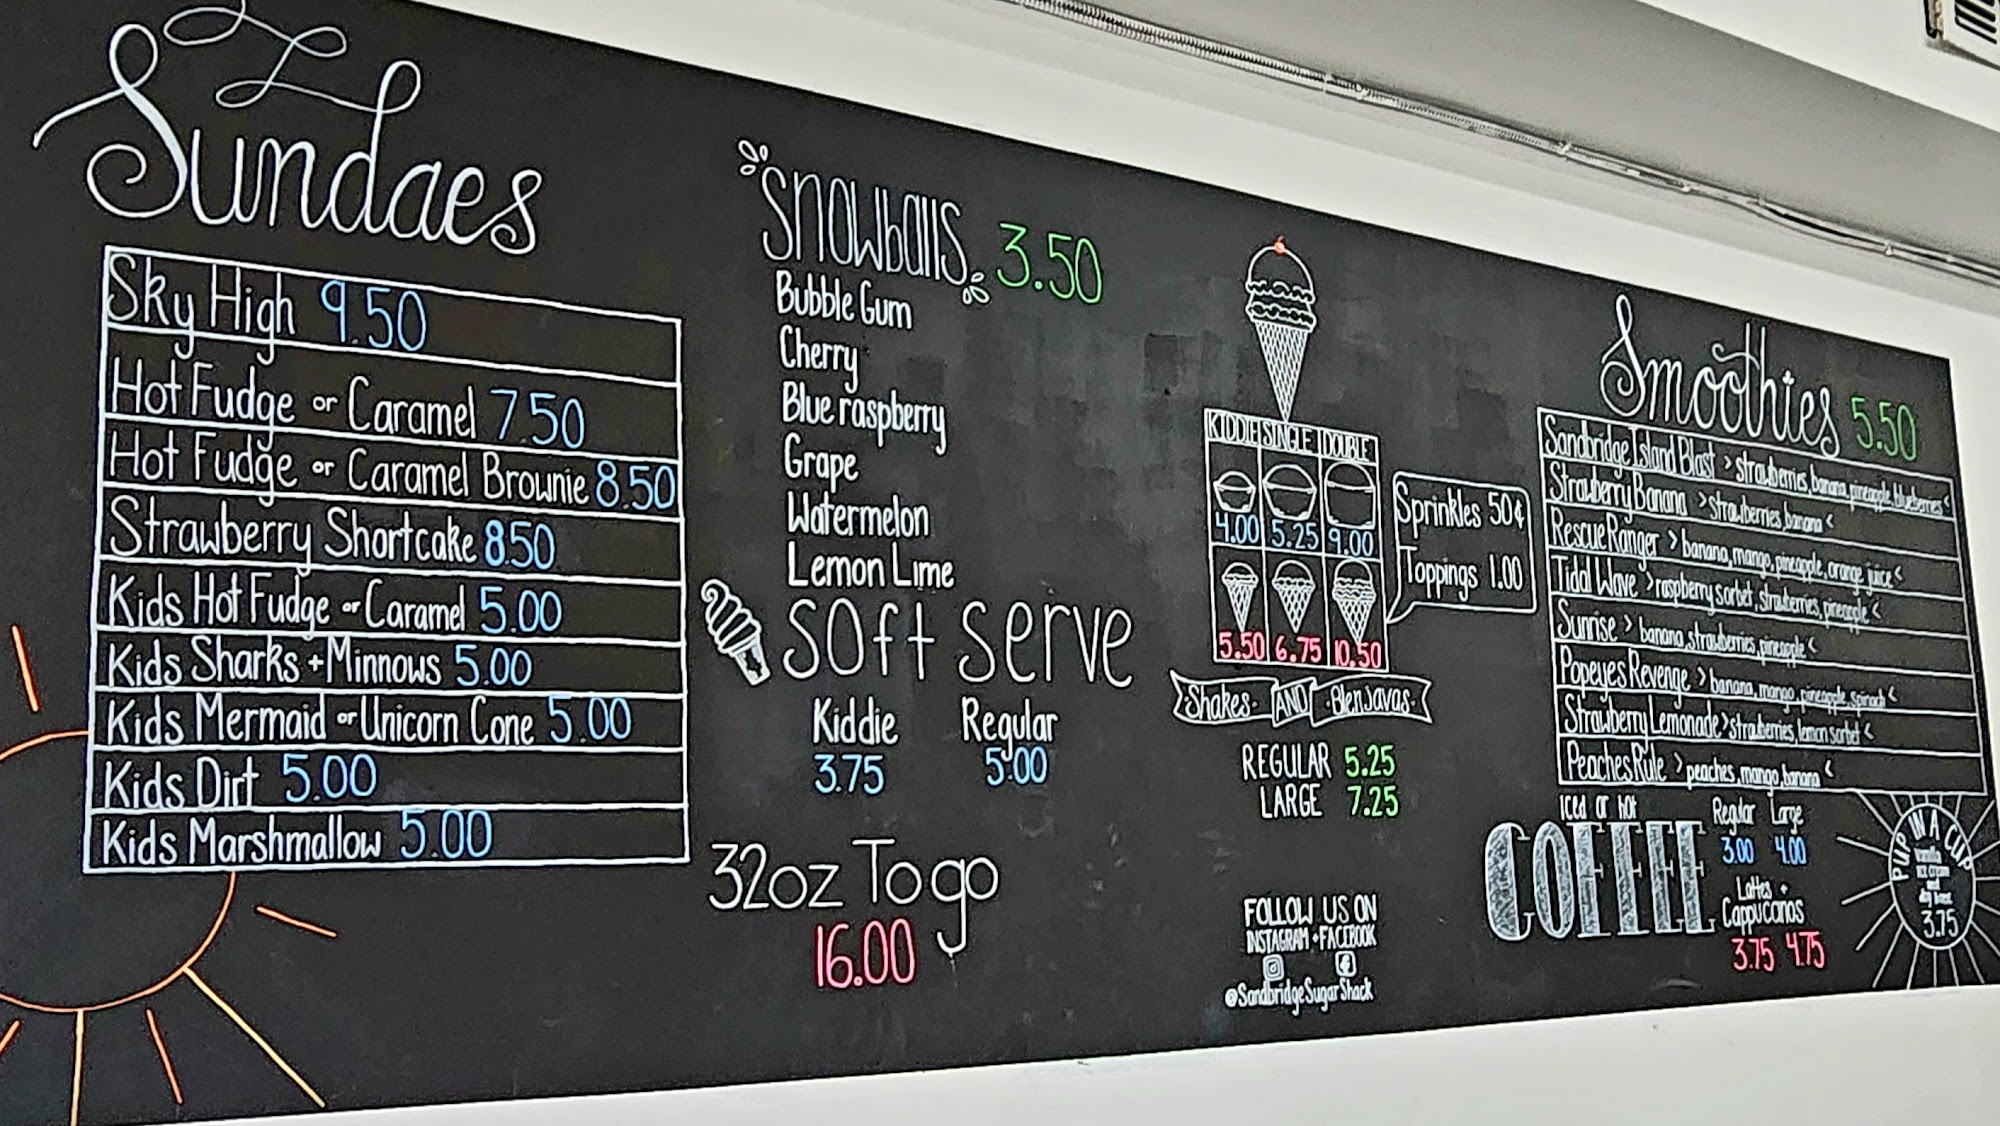 Sundaes
Sky High 9.50
Hot Fudge or Caramel 7.50
Hot Fudge or Caramel Brownie 8.50
Strawberry Shortcake 8.50
Kids Hot Fudge or Caramel 5.00
Kids Sharks + Minnows 5.00
Kids Mermaid or Unicorn Cone 5.00
Kids Dirt 5.00
Kids Marshmallow 5.00
Snowballs 3.50
Bubble Gum
Cherry
Blue raspberry
Grape
Watermelon
Lemon Lime
Soft Serve
Kiddie Regular
3.75 5.00
32oz To go
16.00
KIDDIE SINGLE DOUBLE
4.00 5.25 9.00
5.50 6.75 10.50
Sprinkles 50¢
Toppings 1.00
Shakes AND Blenjavas
REGULAR 5.25
LARGE 7.25
FOLLOW US ON
INSTAGRAM + FACEBOOK
@SandbridgeSugarShack
Smoothies 5.50
Sandbridge Island Blast > strawberries, banana, pineapple, blueberries <
Strawberry Banana > strawberries, banana <
Rescue Ranger > banana, mango, pineapple, orange juice <
Tidal Wave > raspberry sorbet, strawberries, pineapple <
Sunrise > banana, strawberries, pineapple <
Popeyes Revenge > banana, mango, pineapple, spinach <
Strawberry Lemonade > strawberries, lemon sorbet <
Peaches Rule > peaches, mango, banana <
iced or hot
COFFEE
Regular Large
3.00 4.00
Lattes +
Cappucinos
3.75 4.75
PUP IN A CUP
Vanilla
ice cream
and
dog bone
3.75